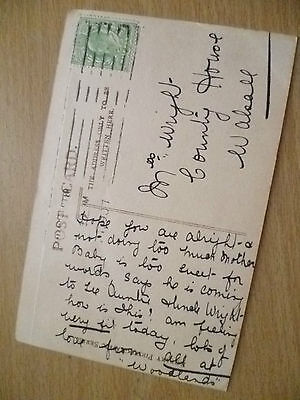 POST CARD.
THE ADDRESS ONLY TO BE
WRITTEN HERE.
Mrs Wright
County House
Walsall
Hope you are alright &
not doing too much Mother
Baby is too sweet for
words says he is coming
to see Auntie & Uncle Wright
how is this! am feeling
very fit today, lots of
love from all at
"Woodlands"